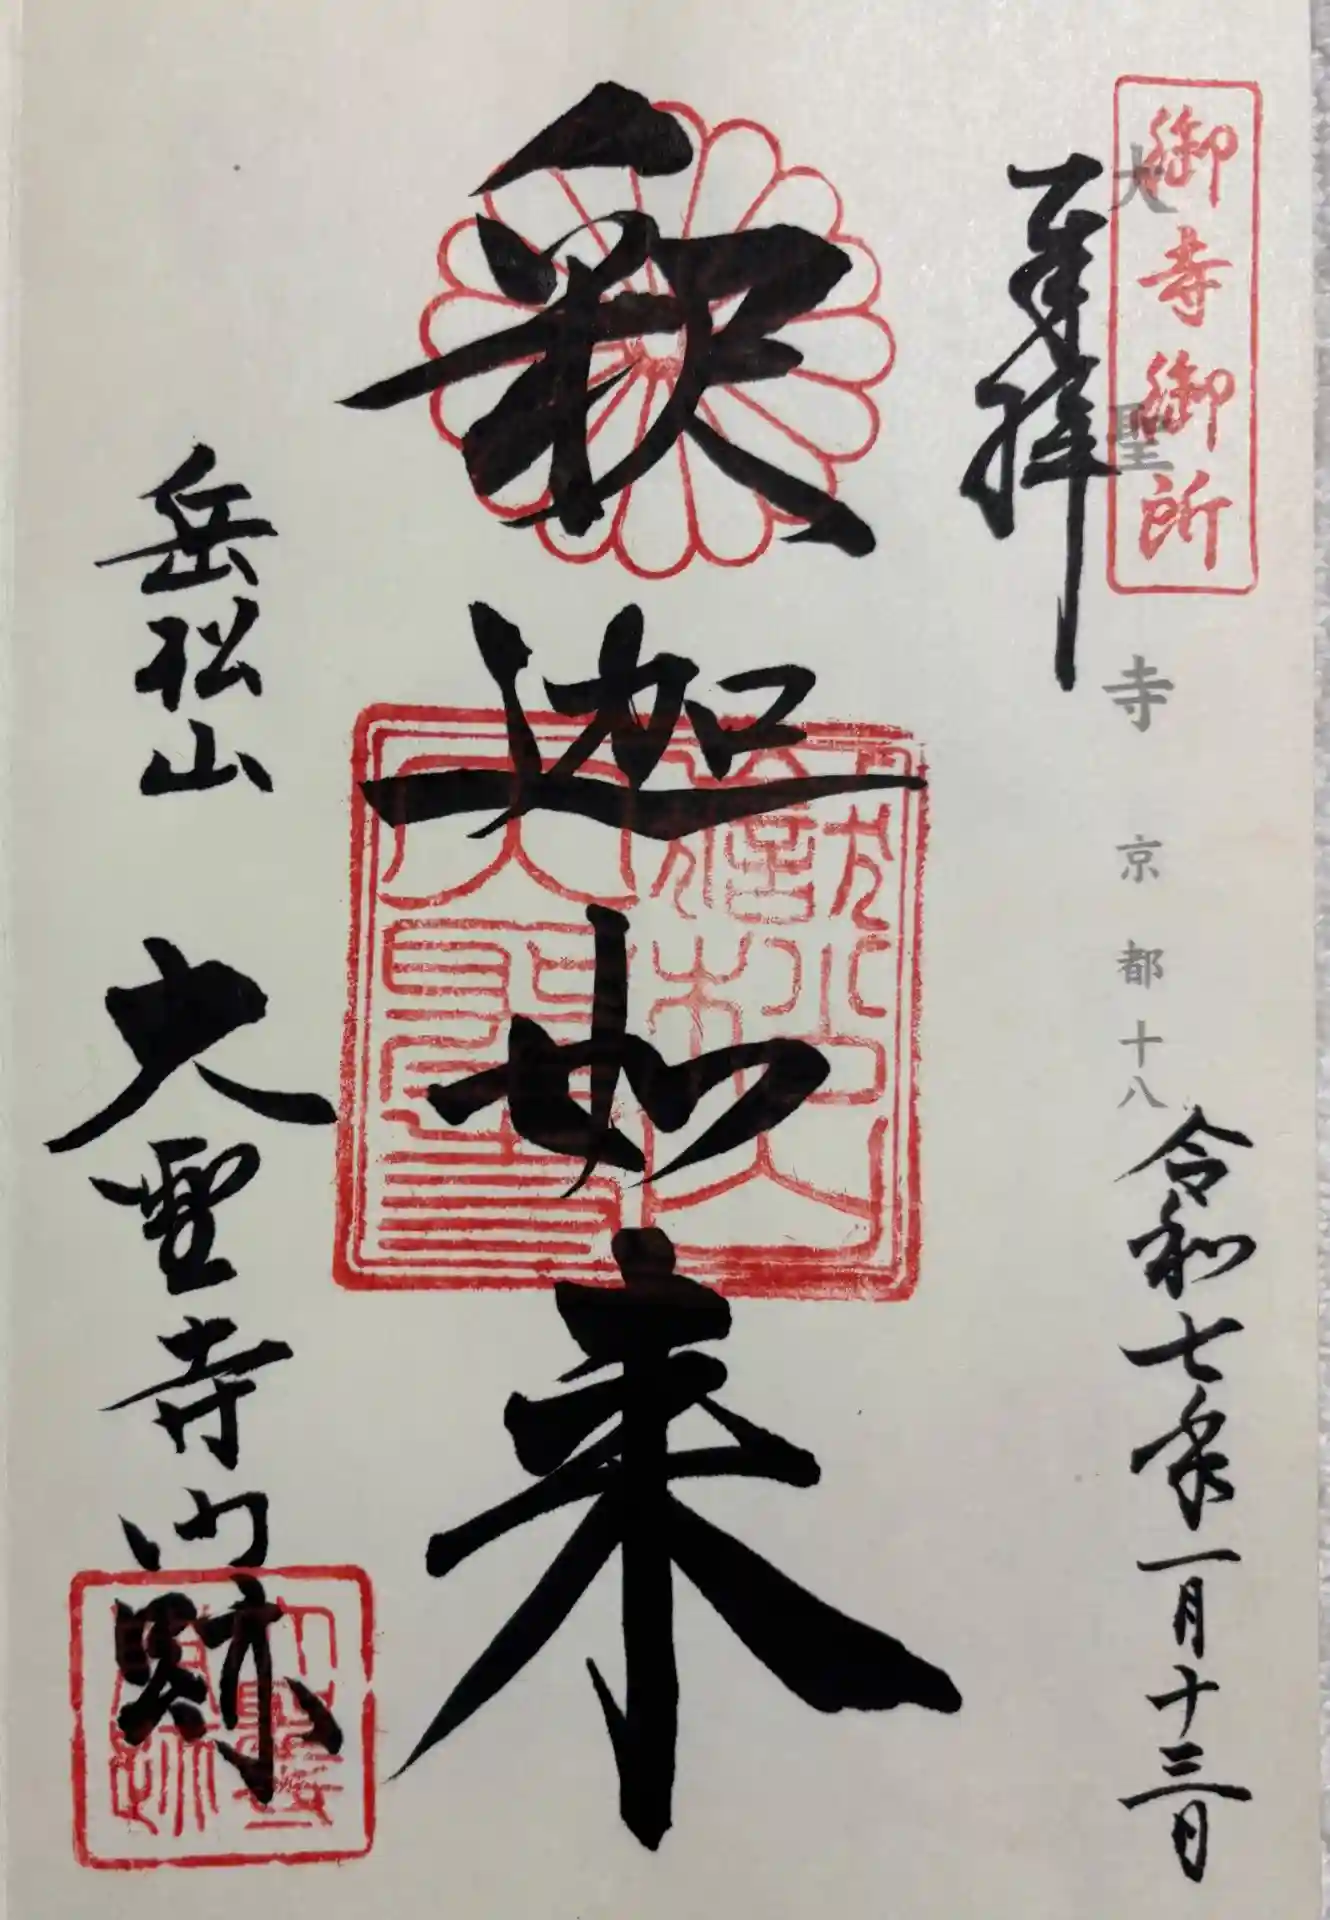 御寺御所
大聖寺 京都十八
奉拝
令和七年一月十三日
釈迦如来
岳松山 大聖寺門跡